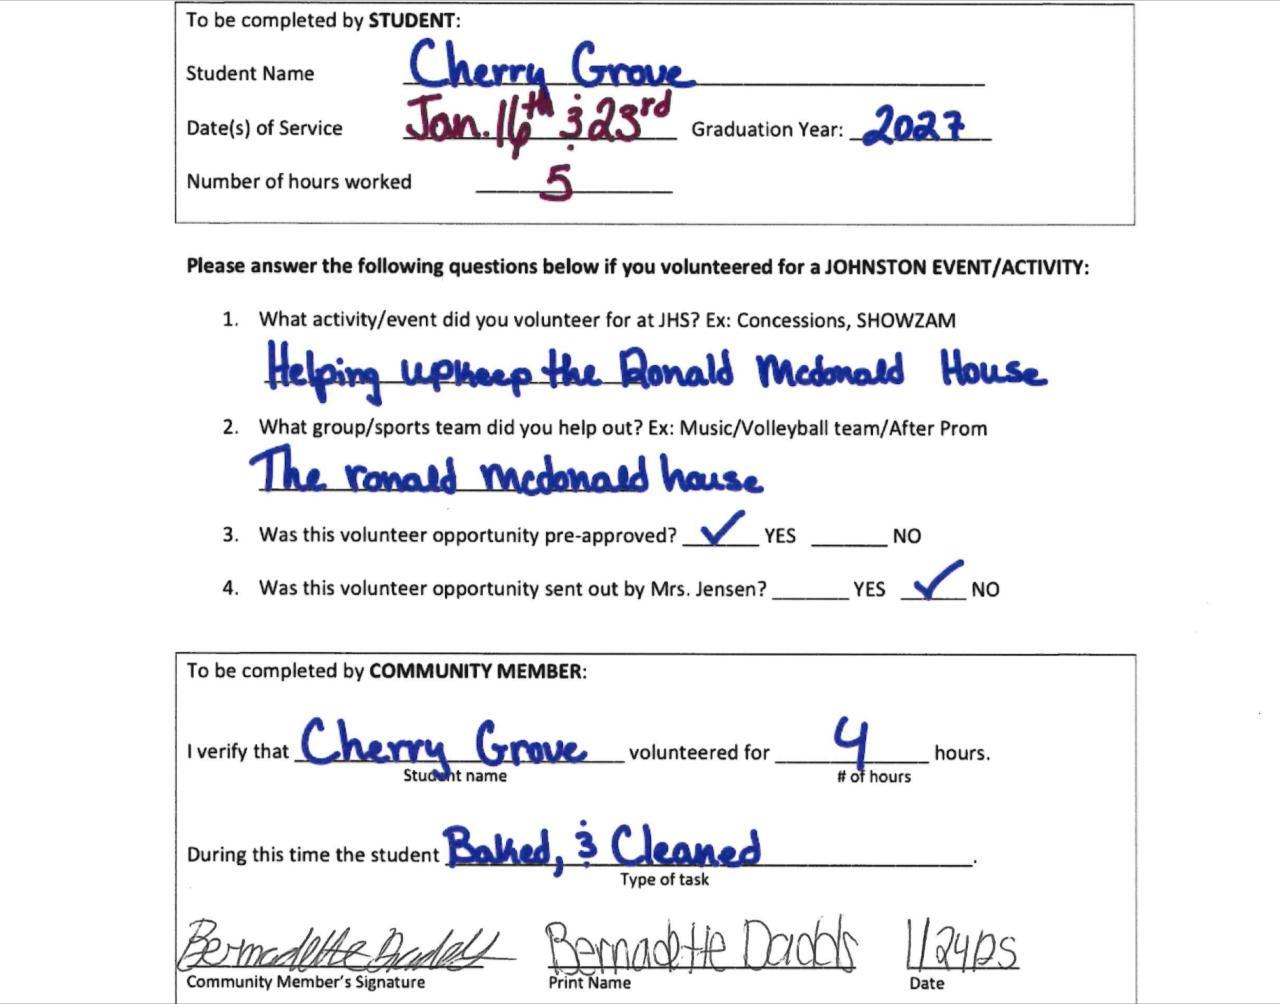 To be completed by STUDENT:
Student Name Cherry Grove
Date(s) of Service Jan. 16th & 23rd Graduation Year: 2027
Number of hours worked 5
Please answer the following questions below if you volunteered for a JOHNSTON EVENT/ACTIVITY:
1. What activity/event did you volunteer for at JHS? Ex: Concessions, SHOWZAM
Helping upkeep the Ronald Mcdonald House
2. What group/sports team did you help out? Ex: Music/Volleyball team/After Prom
The ronald mcdonald house
3. Was this volunteer opportunity pre-approved? ✓ YES ______ NO
4. Was this volunteer opportunity sent out by Mrs. Jensen? ______ YES ✓ NO
To be completed by COMMUNITY MEMBER:
I verify that Cherry Grove volunteered for 4 hours.
Student name # of hours
During this time the student Baked, & Cleaned.
Type of task
Bernadette Dadds Bernadette Dadds 1/24/25
Community Member's Signature Print Name Date